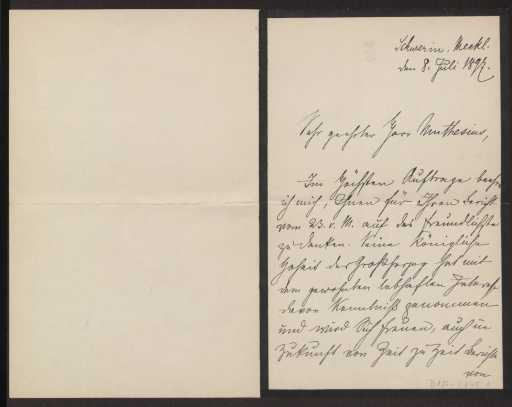 Schwerin, Meckl.
den 8. Juli 1897.
Sehr geehrter Herr Muthesius,
Im Höchsten Auftrage beehre
ich mich, Ihnen für Ihren Bericht
vom 23. v. M. auf das freundlichste
zu danken. Seine Königliche
Hoheit der Großherzog hat mit
dem gewohnten lebhaften Interesse
davon Kenntniß genommen
und wird Sich freuen, auch in
Zukunft von Zeit zu Zeit Berichte
von